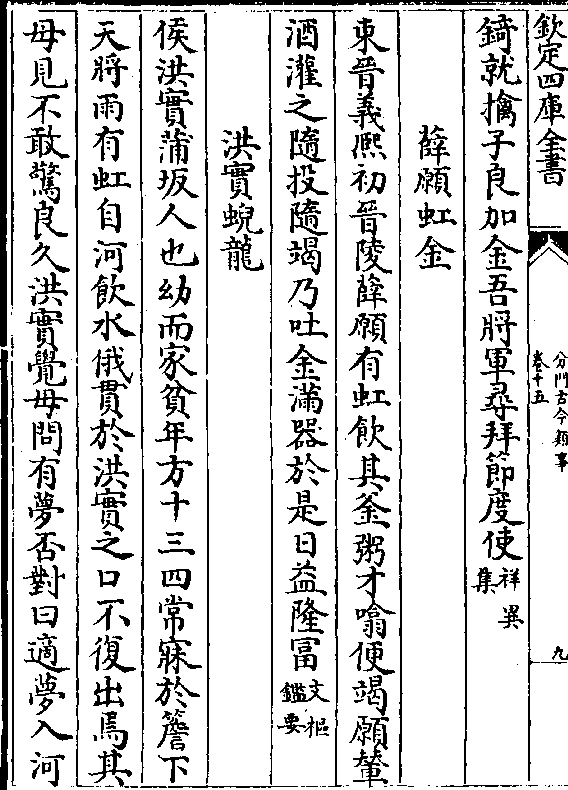 欽定四庫全書
分門古今類事
卷十五
九
錡就擒子良加金吾將軍尋拜節度使祥異集
薛願虹金
東晉義熙初晉陵薛願有虹飲其釜粥才噏便竭願輦
酒灌之隨投隨竭乃吐金滿器於是日益隆富文樞鑑要
洪實蜺龍
侯洪實蒲坂人也幼而家貧年方十三四常寐於簷下
天將雨有虹自河飲水俄貫於洪實之口不復出焉其
母見不敢驚良久洪實覺母問有夢否對曰適夢入河